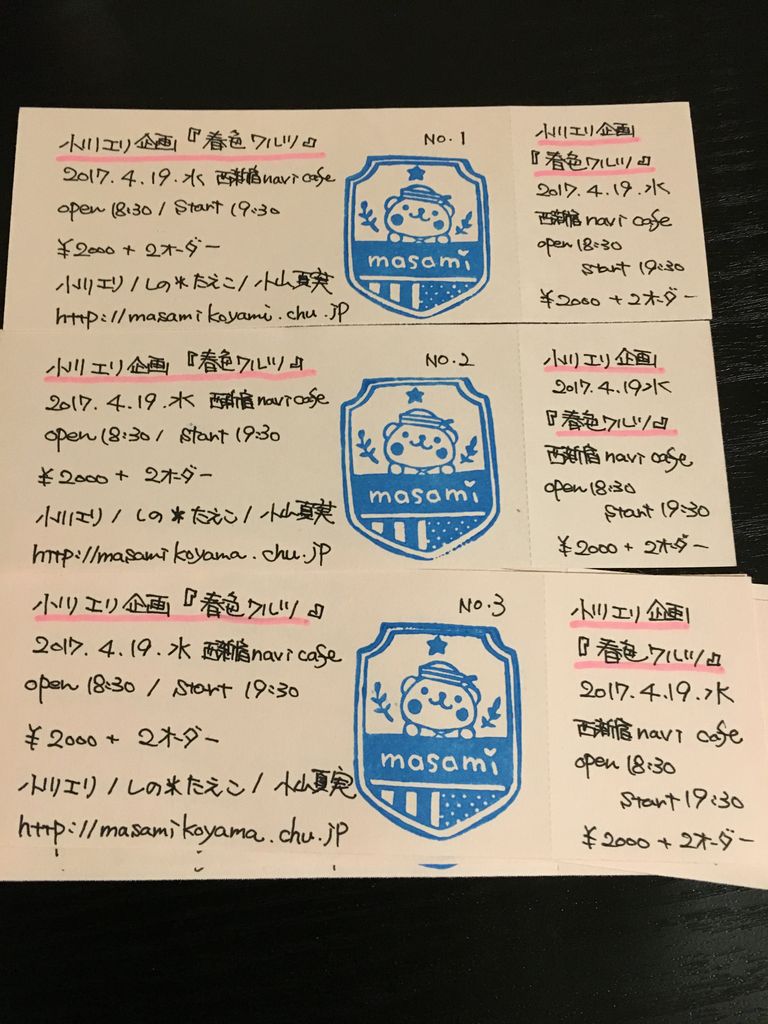 小川エリ企画『春色ワルツ』
No.1
2017.4.19.水 西新宿navi cafe
open 18:30 / start 19:30
¥2000 + 2オーダー
小川エリ / しの*たえこ / 小山夏実
http://masamikoyami.chu.jp
masami
小川エリ企画
『春色ワルツ』
2017.4.19.水
西新宿navi cafe
open 18:30
start 19:30
¥2000 + 2オーダー
小川エリ企画『春色ワルツ』
No.2
2017.4.19.水 西新宿navi cafe
open 18:30 / start 19:30
¥2000 + 2オーダー
小川エリ / しの*たえこ / 小山夏実
http://masamikoyama.chu.jp
masami
小川エリ企画
2017.4.19水
『春色ワルツ』
西新宿navi cafe
open 18:30
start 19:30
¥2000 + 2オーダー
小川エリ企画『春色ワルツ』
No.3
2017.4.19.水 西新宿navi cafe
open 18:30 / start 19:30
¥2000 + 2オーダー
小川エリ / しの*たえこ / 小山夏実
http://masamikoyama.chu.jp
masami
小川エリ企画
『春色ワルツ』
2017.4.19.水
西新宿navi cafe
open 18:30
start 19:30
¥2000 + 2オーダー